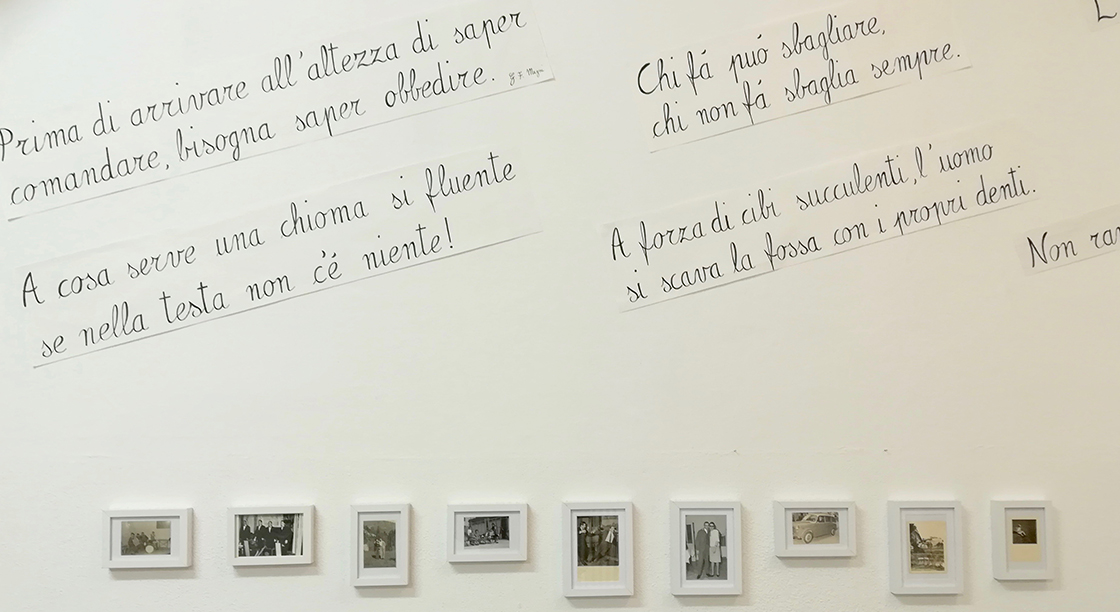 Prima di arrivare all'altezza di saper
comandare, bisogna saper obbedire.
A cosa serve una chioma si fluente
se nella testa non c'é niente!
Chi fá puó sbagliare,
chi non fá sbaglia sempre.
A forza di cibi succulenti, l'uomo
si scava la fossa con i propri denti.
Non